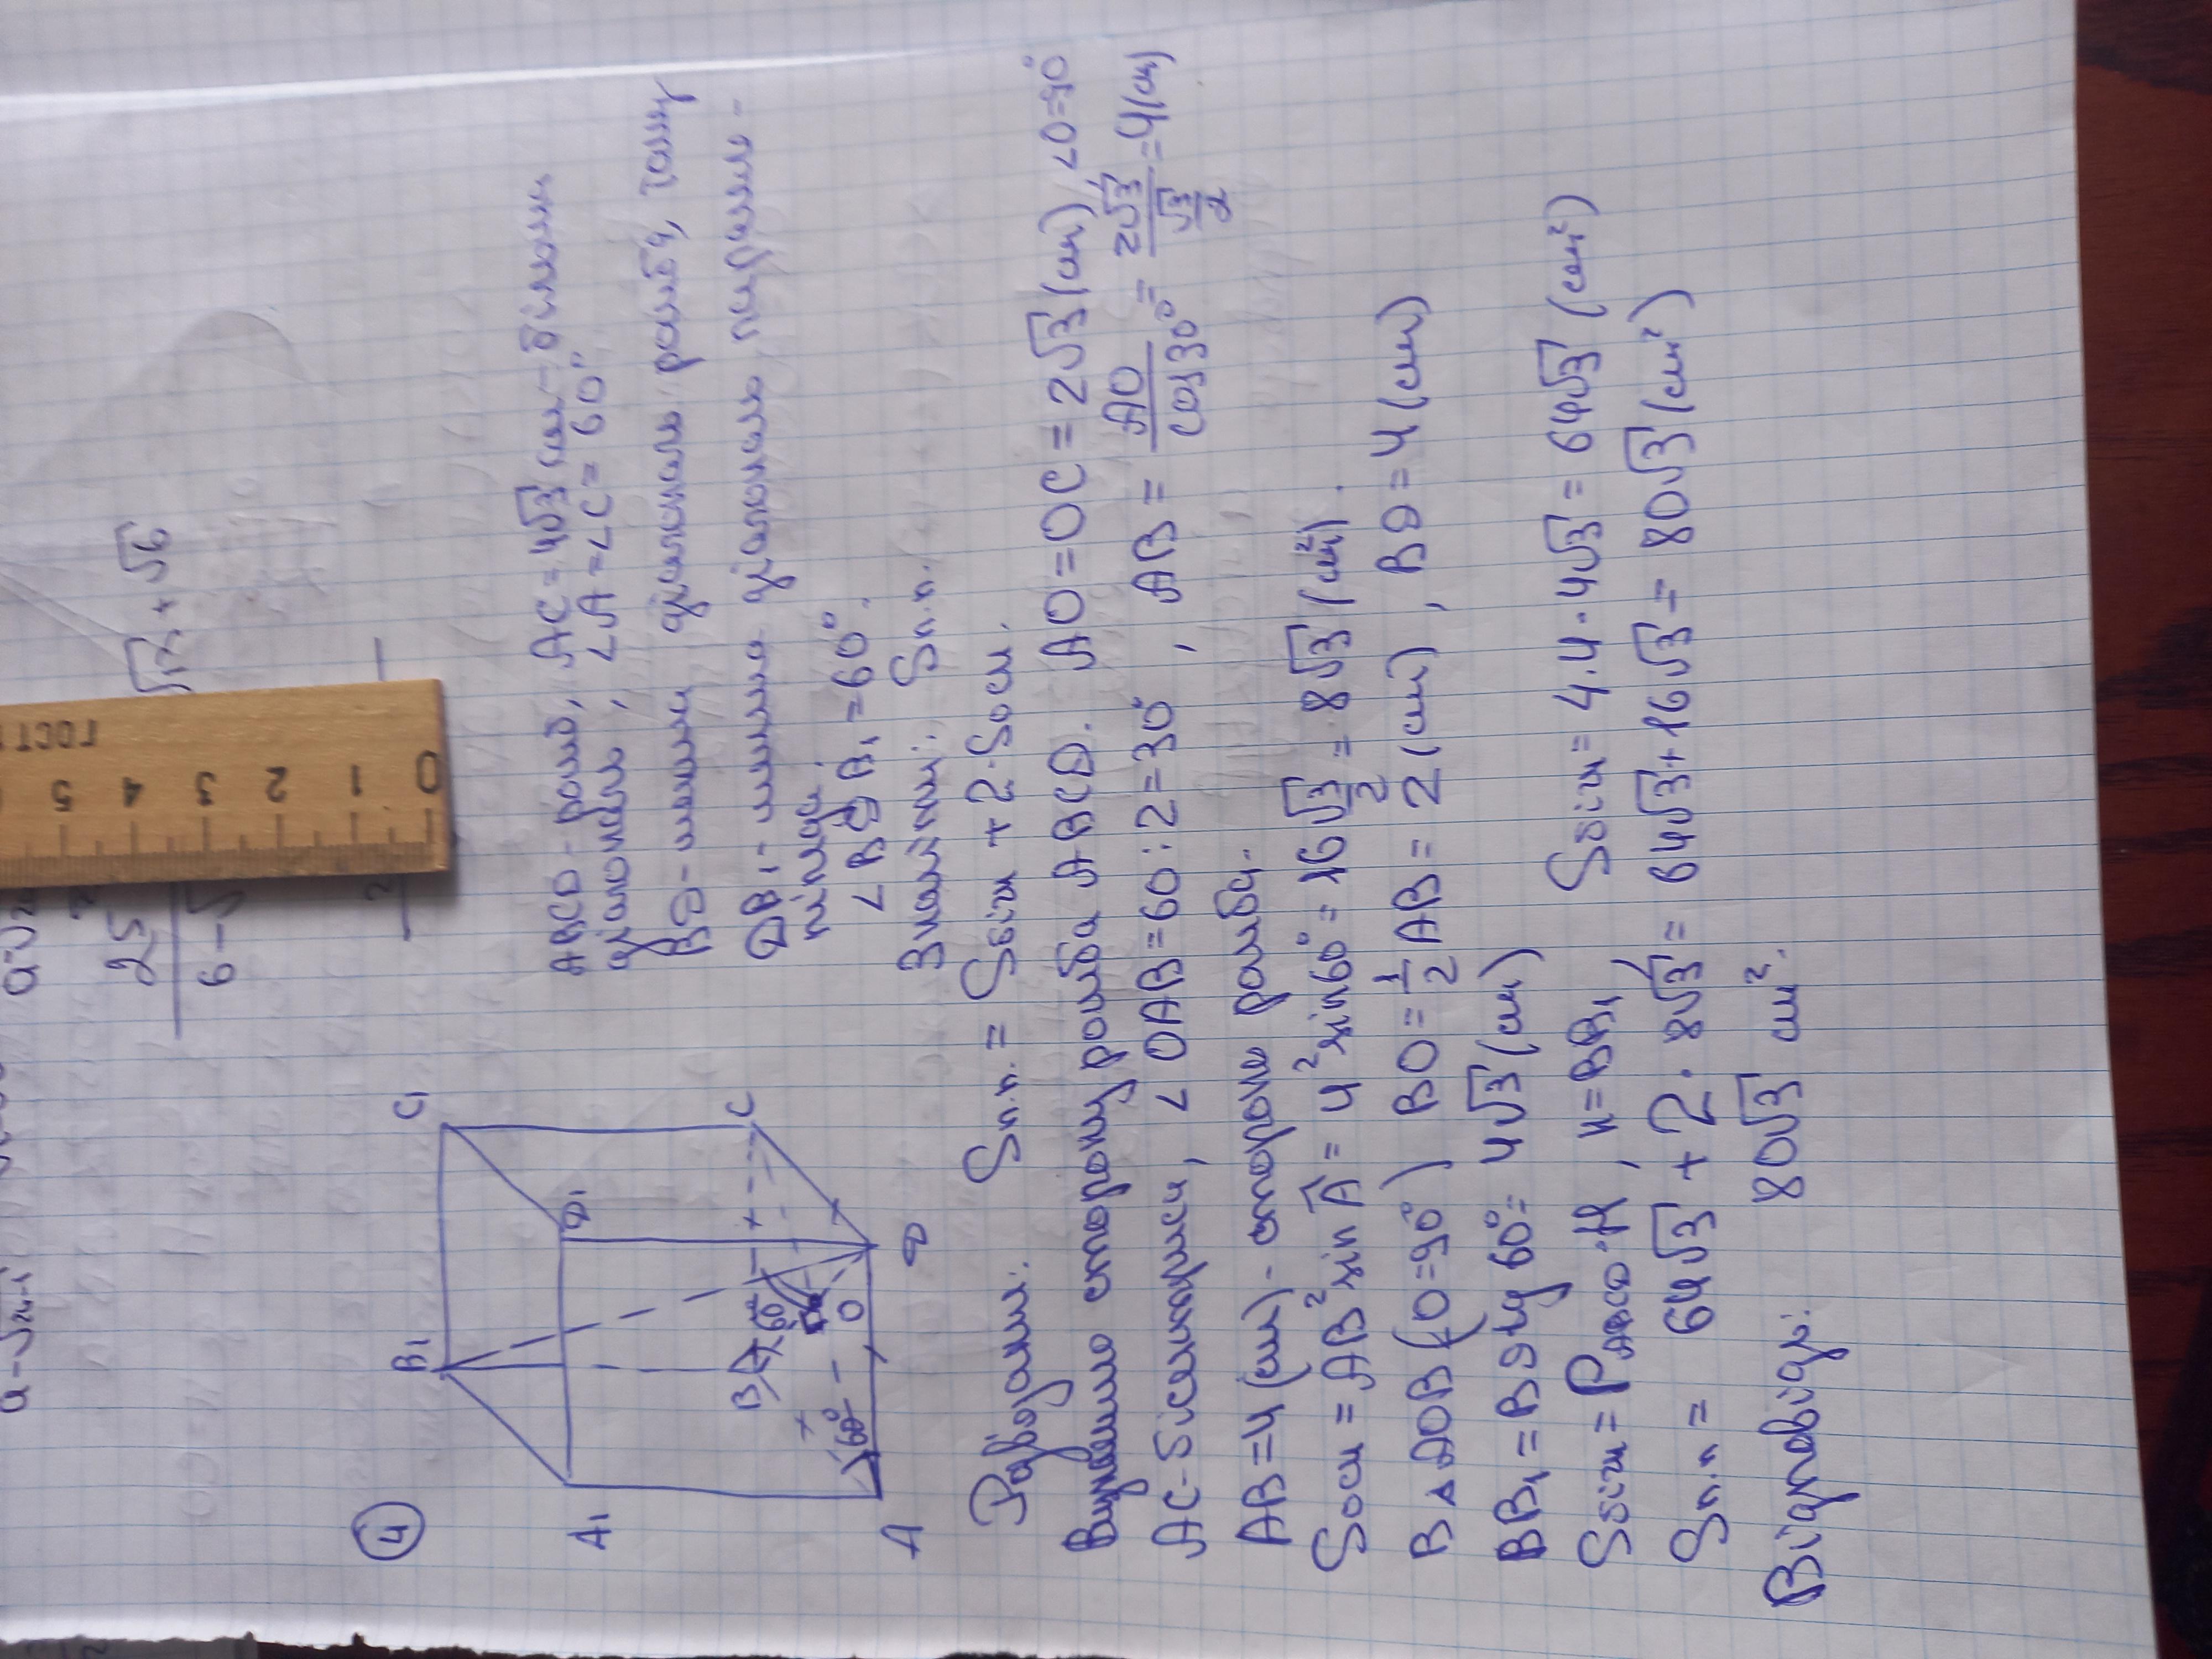 a-√24-1
a-√2
25
6-5
√12+√6
ГОСТ
5 4 3 2 1 0
4
B1 C1
A1 D1
B C
60°
60°
O
A D
ABCD - ромб, AC=4√3 см - більша
діагональ, <A=<C=60°
BD - менша діагональ ромба, тому
DB1 - менша діагональ паралеле-
піпеда.
<BDB1=60°.
Знайти: Sп.п.
Розв'язання: Sп.п. = Sбіч + 2·Sосн.
Визначимо сторону ромба ABCD. AO=OC=2√3(см), <O=90°
AC-бісектриса, <OAB=60:2=30°, AB=AO/cos30°=2√3/(√3/2)=4(см)
AB=4(см)-сторона ромба.
Sосн=AB² sin A=4² sin60°=16 √3/2=8√3(см²).
В ∆AOB(O=90°) BO=1/2 AB=2(см), BD=4(см)
BB1=BD tg 60°=4√3(см)
Sбіч=PABCD·H, H=BB1 Sбіч=4·4·4√3=64√3(см²)
Sп.п=64√3+2·8√3=64√3+16√3=80√3(см²)
Відповідь: 80√3 см².